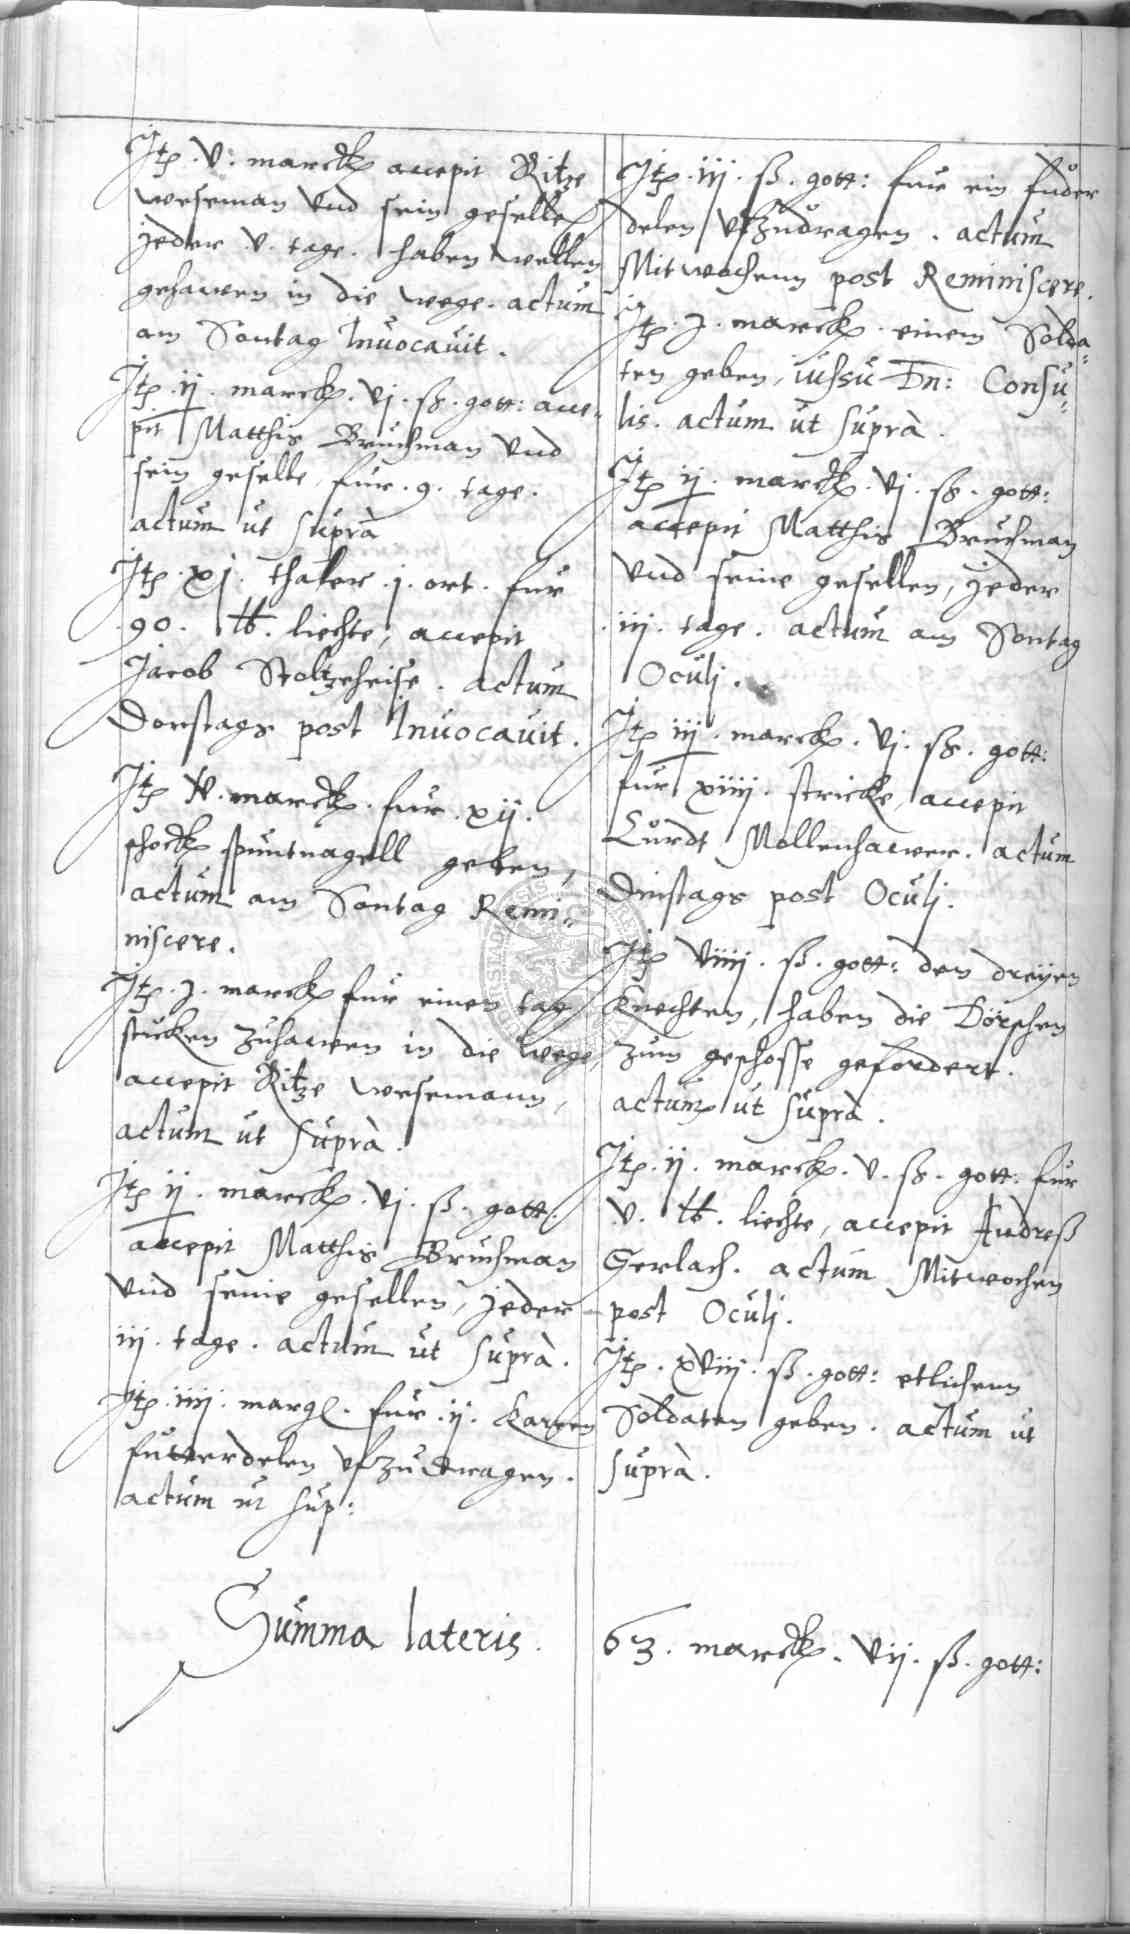 Itē. v. marck accepit Ritze
Weseman vnd sein geselle
jeder .v. tage. haben wellen
gehawen in die wege. actum
am Sontag Invocavit.
Itē. ij. marck. vj. ß. gott: acce-
pit Matthis Bruchman vnd
sein geselle, fur .9. tage.
actum ut suprà
Itē. xj. thaler .j. ort. fur
.90. ℔. liechte, accepit
Jacob Stoltzeheise. actum
Dorstags post Invocavit.
Itē v. marck. fur .xij.
schock spuntnagell geben,
actum am Sontag Remi-
niscere.
Itē. j. marck fur einen tag
stucken zuhawen in die wege,
accepit Ritze Wesemann,
actum ut suprà.
Itē ij. marck. vj. ß. gott.
accepit Matthis Bruchman
vnd seine gesellen, jeder
iij. tage. actum ut suprà.
Itē. iiij. marck. fur .ij. karren
futterdelen vfzudragen.
actum ut sup:
Itē. iij. ß. gott: fur ein fuder
delen vfzudragen. actum
Mitwochenn post Reminiscere.
Itē. j. marck. einem Solda-
ten geben, iussu Dn: Consu-
lis. actum ut suprà.
Itē ij. marck. vj. ß. gott:
accepit Matthis Bruchman
vnd seine gesellen, jeder
.iij. tage. actum am Sontag
Oculj.
Itē iij. marck. vj. ß. gott:
fur xiiij. stricke, accepit
Curdt Mollenhawer. actum
Dinstags post Oculj.
Itē viiij. ß. gott: den dreyen
knechten, haben die Dörschen
zum geschosse gefordert.
actum ut suprà.
Itē. ij. marck. v. ß. gott: fur
v. ℔. liechte, accepit Andreß
Gerlach. actum Mitwochen
post Oculj.
Itē. xviij. ß. gott: etlichenn
Soldaten geben. actum ut
suprà.
Summa lateris.
63. marck. vij. ß. gott: